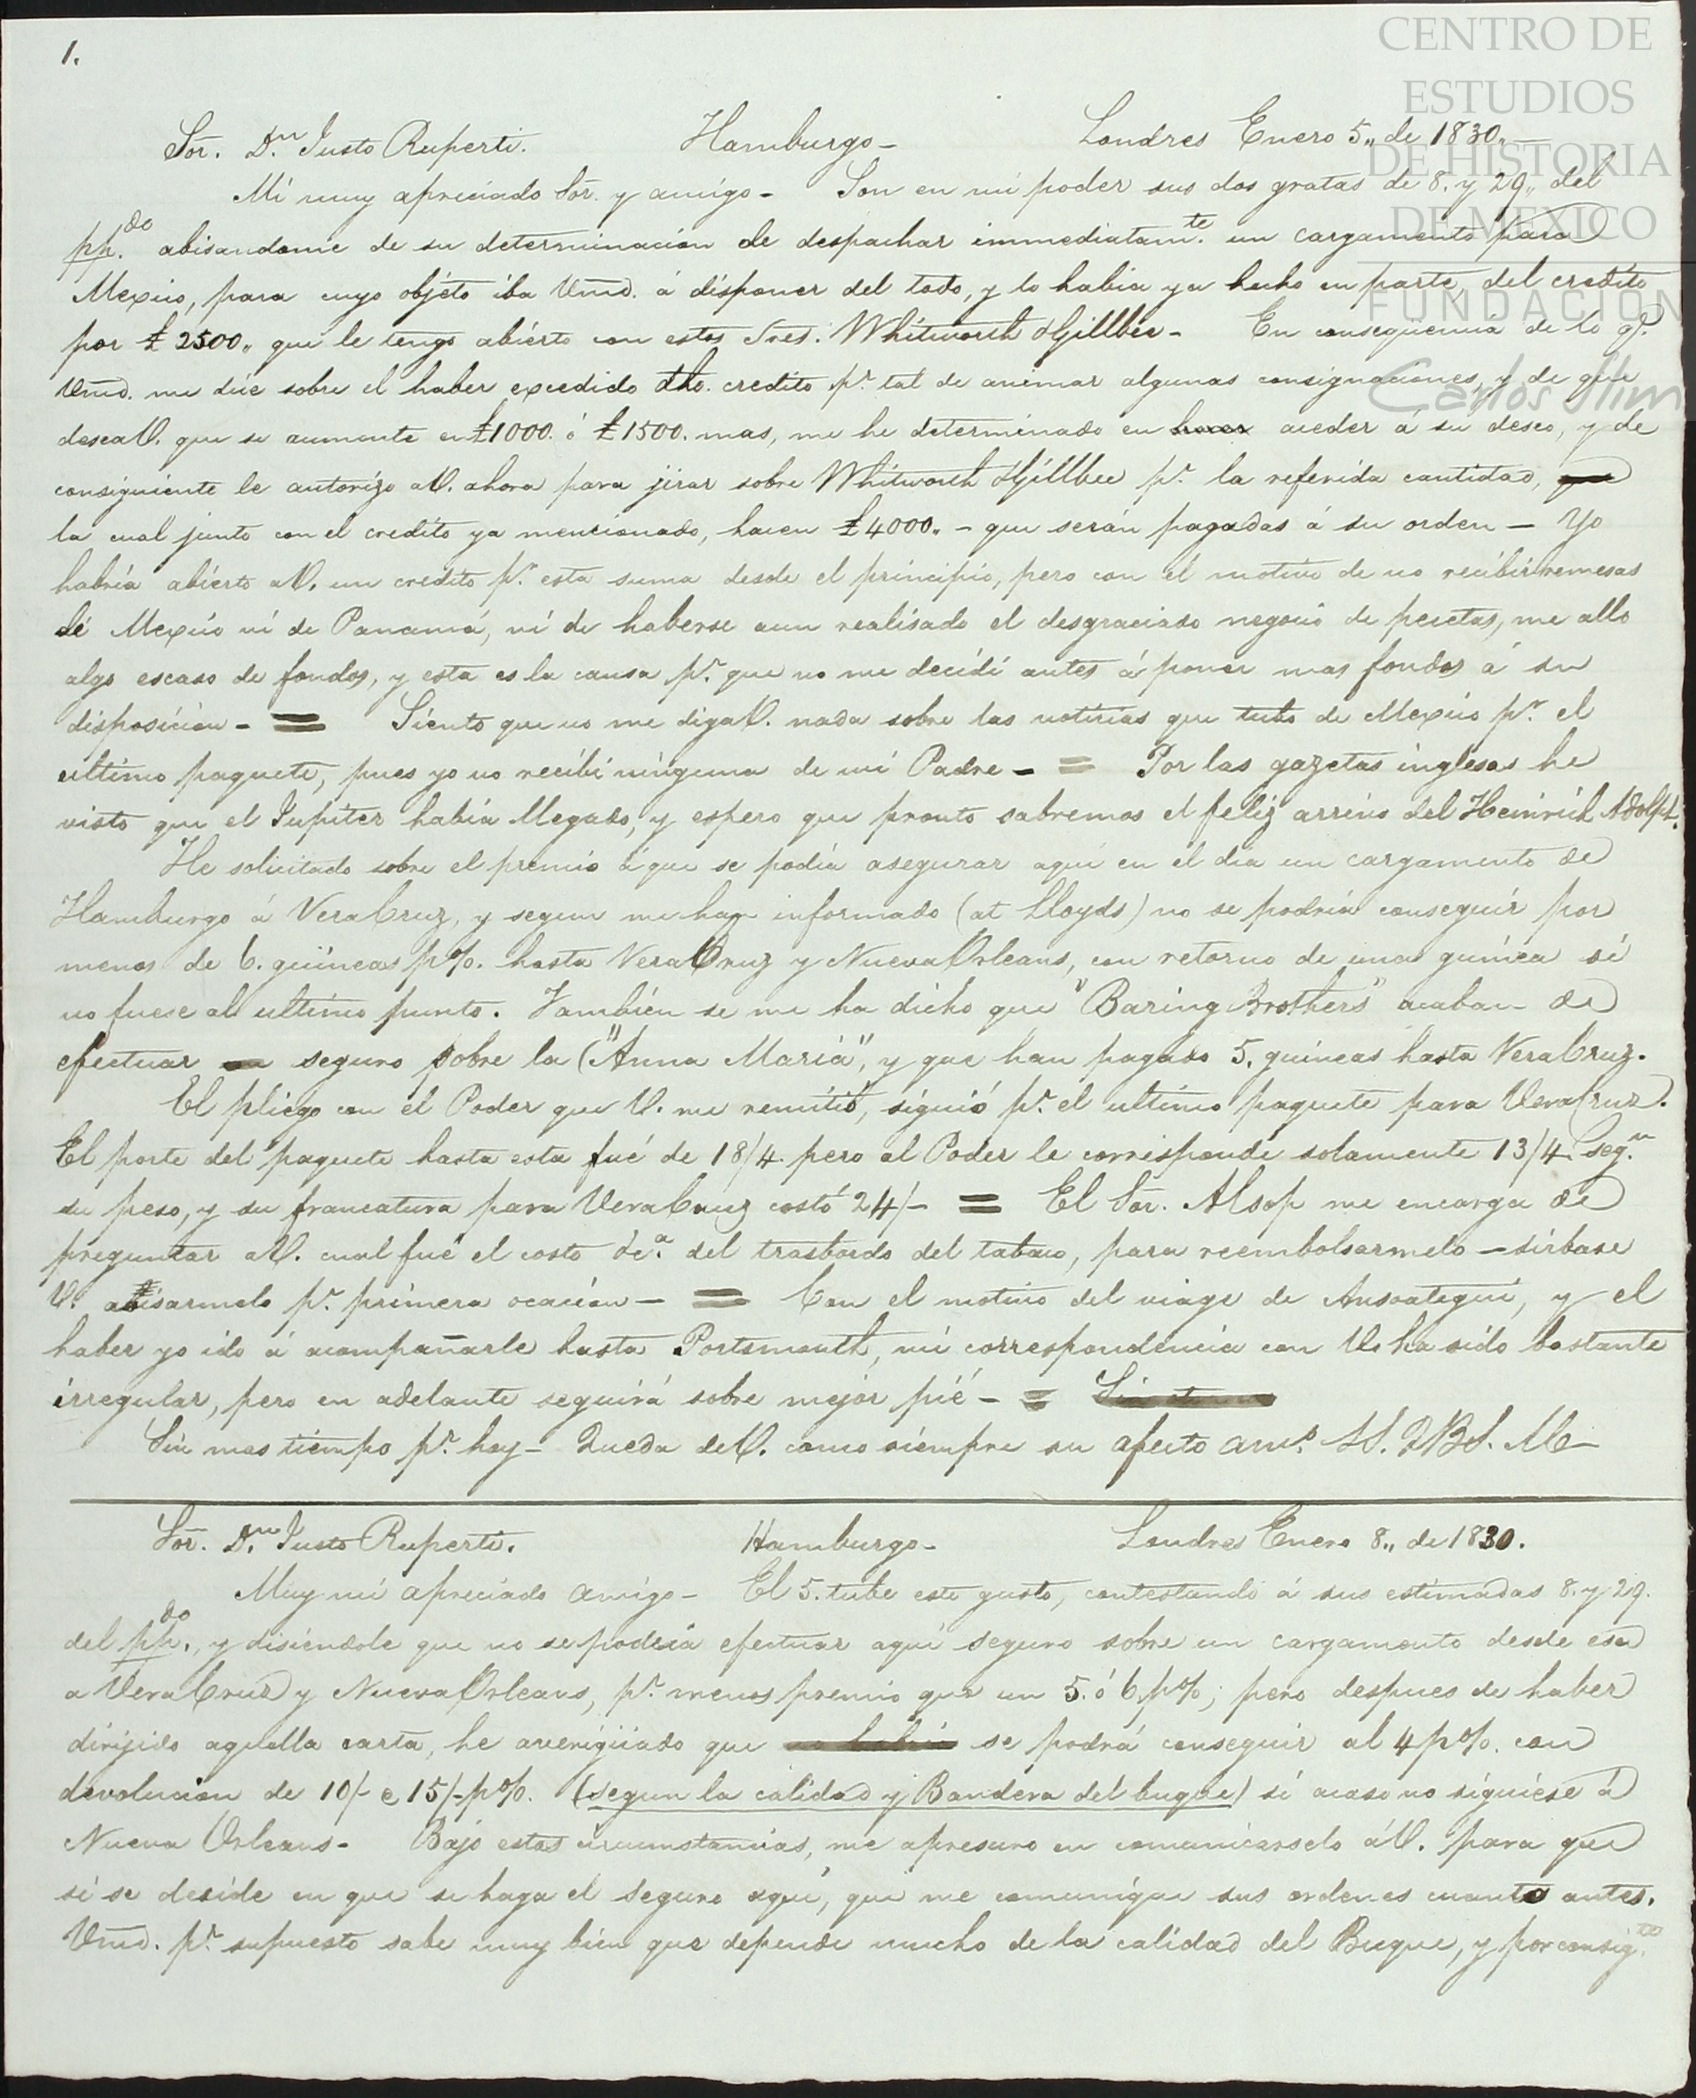 1.
CENTRO DE
ESTUDIOS
DE HISTORIA
DE MEXICO
FUNDACIÓN
Carlos Slim
Sor. Dn. Justo Ruperti. Hamburgo- Londres Enero 5,, de 1830,,-
Mi muy apreciado Sor. y amigo- Son en mi poder sus dos gratas de 8. y 29,, del
pp.do abisandome de su determinacion de despachar immediatamte. un cargamento para
Mexico, para cuyo objéto iba Vmd. á disponer del todo, y lo habia ya hecho en parte, del credito
por £ 2500,, que le tengo abiérto con estos Sres. Whitworth & Gillbee- En conseqüencia de lo q.
Vmd. me dice sobre el haber excedido dho. credito pr. tal de animar algunas consignaciones, y de que
desea V. que se aumente en £1000. ó £1500. mas, me he determinado en hacer acceder á su deseo, y de
consiguiente le autorizo a V. ahora para jirar sobre Whitworth & Gillbee pr. la referida cantidad,
la cual junto con el credito ya mencionado, hacen £4000,,- que serán pagadas á su orden- Yo
habria abiérto a V. un credito pr. esta suma desde el principio, pero con el motivo de no recibir remesas
de Mexico ni de Panamá, ni de haberse aun realisado el desgraciado negocio de pesetas, me allo
algo escaso de fondos, y esta es la causa pr. que no me decidi antes á poner mas fondos á su
disposicion- = Siento que no me diga V. nada sobre las noticias que tubo de Mexico pr. el
ultimo paquete, pues yo no recibi ninguna de mi Padre- = Por las gazetas inglesas he
visto que el Jupiter habia llegado, y espero que pronto sabremos el feliz arrivo del Heinrich Adolph.
He solicitado sobre el premio á que se podia asegurar aqui en el dia un cargamento de
Hamburgo á VeraCruz, y segun me han informado (at Lloyds) no se podria conseguir por
menos de 6. guineas p%. hasta VeraCruz y Nueva Orleans, con retorno de una guinéa si
no fuese al ultimo punto. También se me ha dicho que "Baring Brothers" acaban de
efectuar seguro sobre la ("Anna Maria", y que han pagado 5. guineas hasta VeraCruz.
El pliego con el Poder que V. me remitió, siguió pr. el ultimo paquete para VeraCruz.
El porte del paquete hasta esta fué de 18/4. pero al Poder le corresponde solamente 13/4. segn.
su peso, y su francatura para VeraCruz costó 24/- = El Sor. Alsop me encarga de
preguntar a V. cual fué el costo &c.a del trasbordo del tabaco, para reembolsarmelo - sirbase
V. abisarmelo pr. primera ocacion- = Con el motivo del viage de Ansoategui, y el
haber yo ido á acompañarle hasta Portsmouth, mi correspondencia con V. ha sido bastante
irregular, pero en adelante seguirá sobre mejor pié- =
Sin mas tiempo pr. hoy- Queda de V. como siempre su afecto amo. SS. QBS. M-
Sor. Dn. Justo Ruperti. Hamburgo- Londres Enero 8,, de 1830.
Muy mi apreciado amigo- El 5. tube este gusto, contestando á sus estimadas 8. y 29.
del pp.do, y disiéndole que no se podria efectuar aqui seguro sobre un cargamento desde esa
a VeraCruz y Nueva Orleans, pr. menos premio que un 5. ó 6 p%; pero despues de haber
dirijido aquella carta, he averigüado que se podrá conseguir al 4 p%. con
devolucion de 10/- a 15/- p%. (segun la calidad y Bandera del buque) si acaso no siguiése á
Nueva Orleans- Bajo estas circumstancias, me apresuro en comunicarselo á V. para que
si se deside en que se haga el seguro aqui, que me comunique sus ordenes cuanto antes.
Vmd. pr. supuesto sabe muy bien que depende mucho de la calidad del Buque, y por consigte.